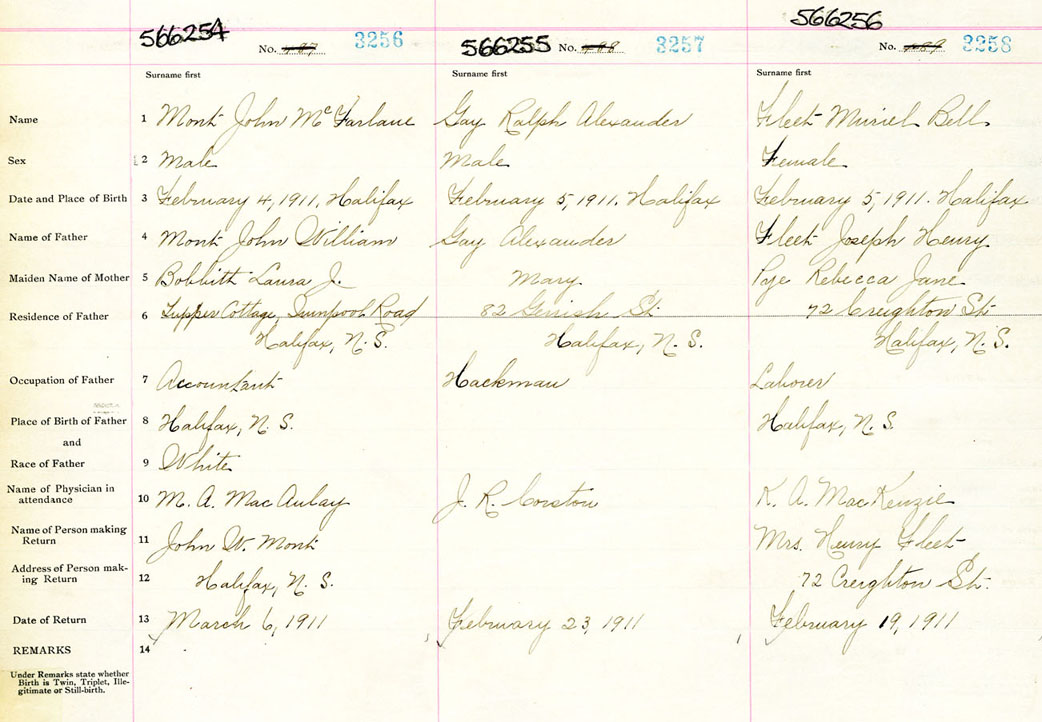 566254 No. 487 3256 566255 No. 488 3257 566256 No. 489 3258
Surname first Surname first Surname first
Name 1 Mont John McFarlane Gay Ralph Alexander Fleet Muriel Bell
Sex 2 Male Male Female
Date and Place of Birth 3 February 4, 1911, Halifax February 5, 1911. Halifax February 5, 1911. Halifax
Name of Father 4 Mont John William Gay Alexander Fleet Joseph Henry
Maiden Name of Mother 5 Bobbitt Laura J. Mary Pye Rebecca Jane
Residence of Father 6 Tupper Cottage, Quinpool Road 82 Gerrish St. 72 Creighton St.
Halifax, N.S. Halifax, N.S. Halifax, N.S.
Occupation of Father 7 Accountant Hackman Laborer
Place of Birth of Father 8 Halifax, N.S. Halifax, N.S.
and
Race of Father 9 White
Name of Physician in
attendance 10 M. A. MacAulay J. R. Corston K. A. MacKenzie
Name of Person making
Return 11 John W. Mont Mrs. Henry Fleet
Address of Person mak-
ing Return 12 Halifax, N.S. 72 Creighton St.
Date of Return 13 March 6, 1911 February 23, 1911 February 19, 1911
REMARKS 14
Under Remarks state whether
Birth is Twin, Triplet, Ille-
gitimate or Still-birth.